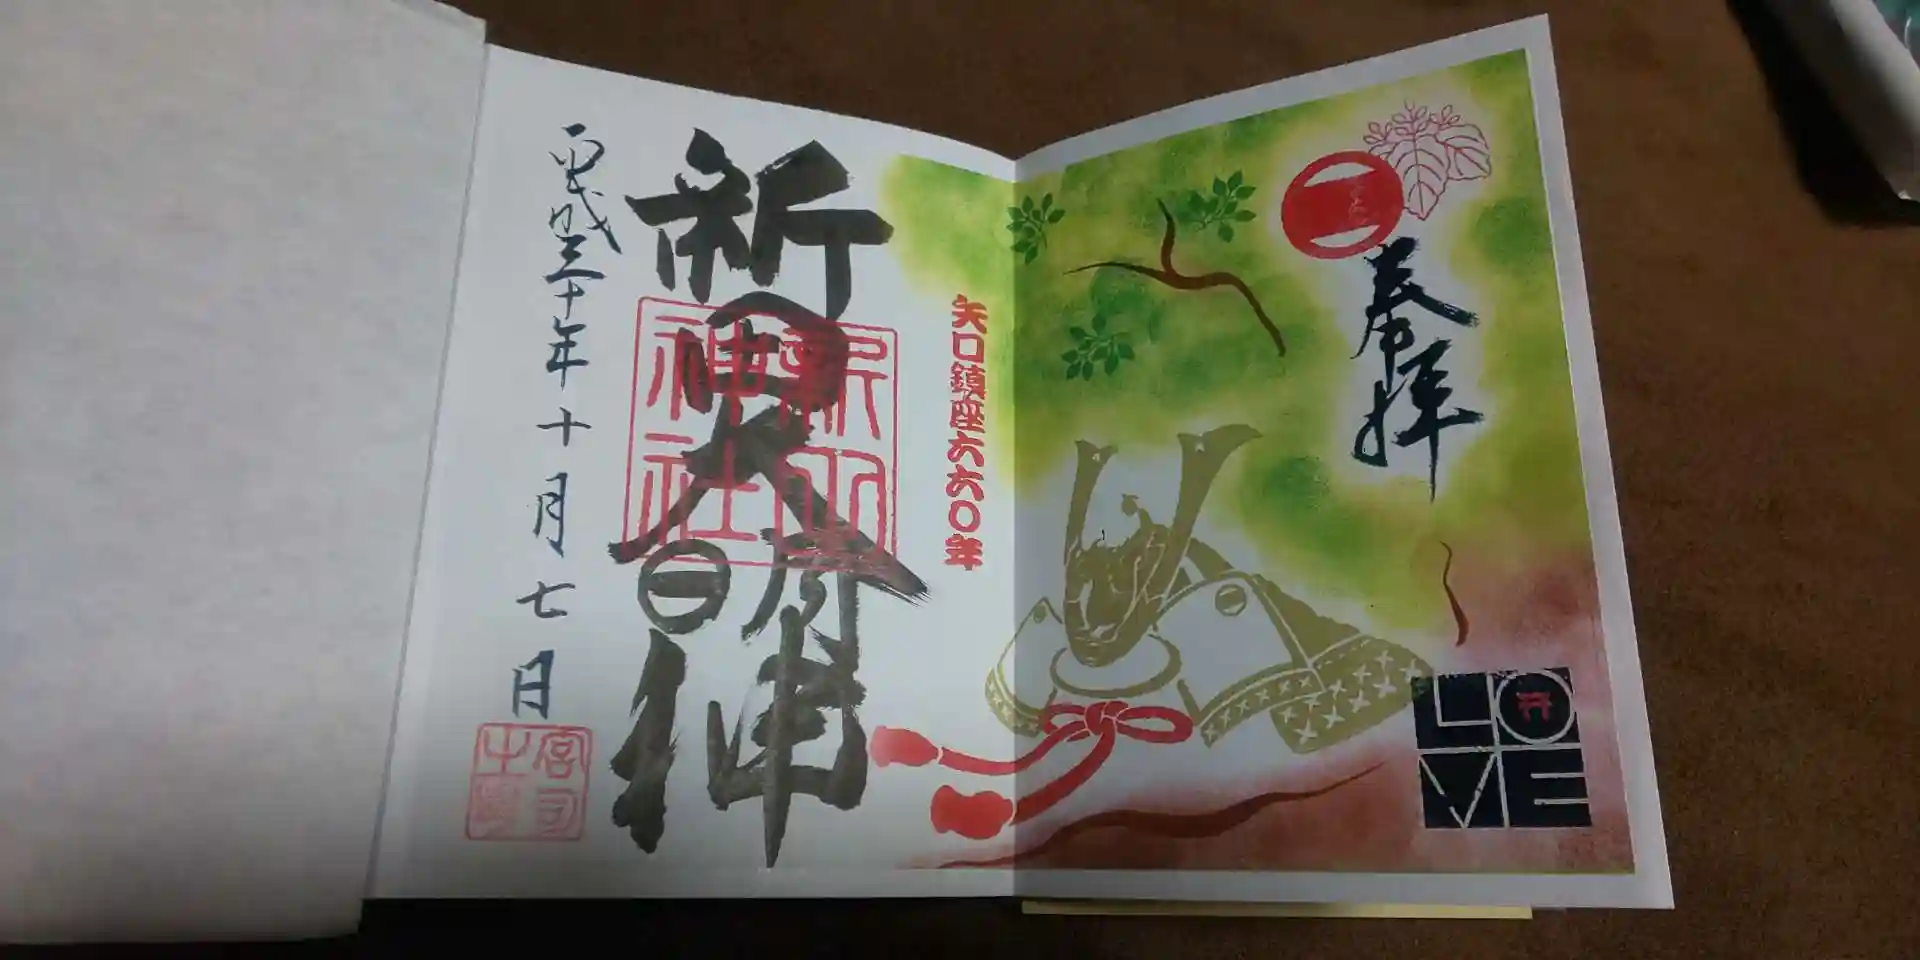 奉拝
LOVE
矢口鎮座六六〇年
新田大明神
新田神社
平成三十年十月七日
宮司之印